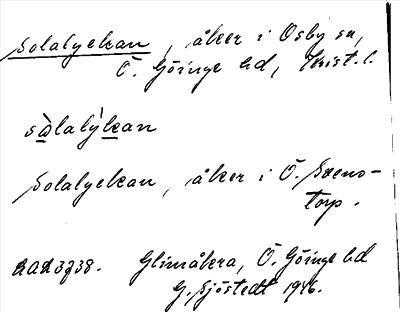 Solalyckan, åker i Osby sn,
Ö. Göinge hd, Krist. l.
sòlalýkan
Solalyckan, åker i Ö. Svens-
torp.
Glimåkra, Ö. Göinge hd
G. Sjöstedt 1946.